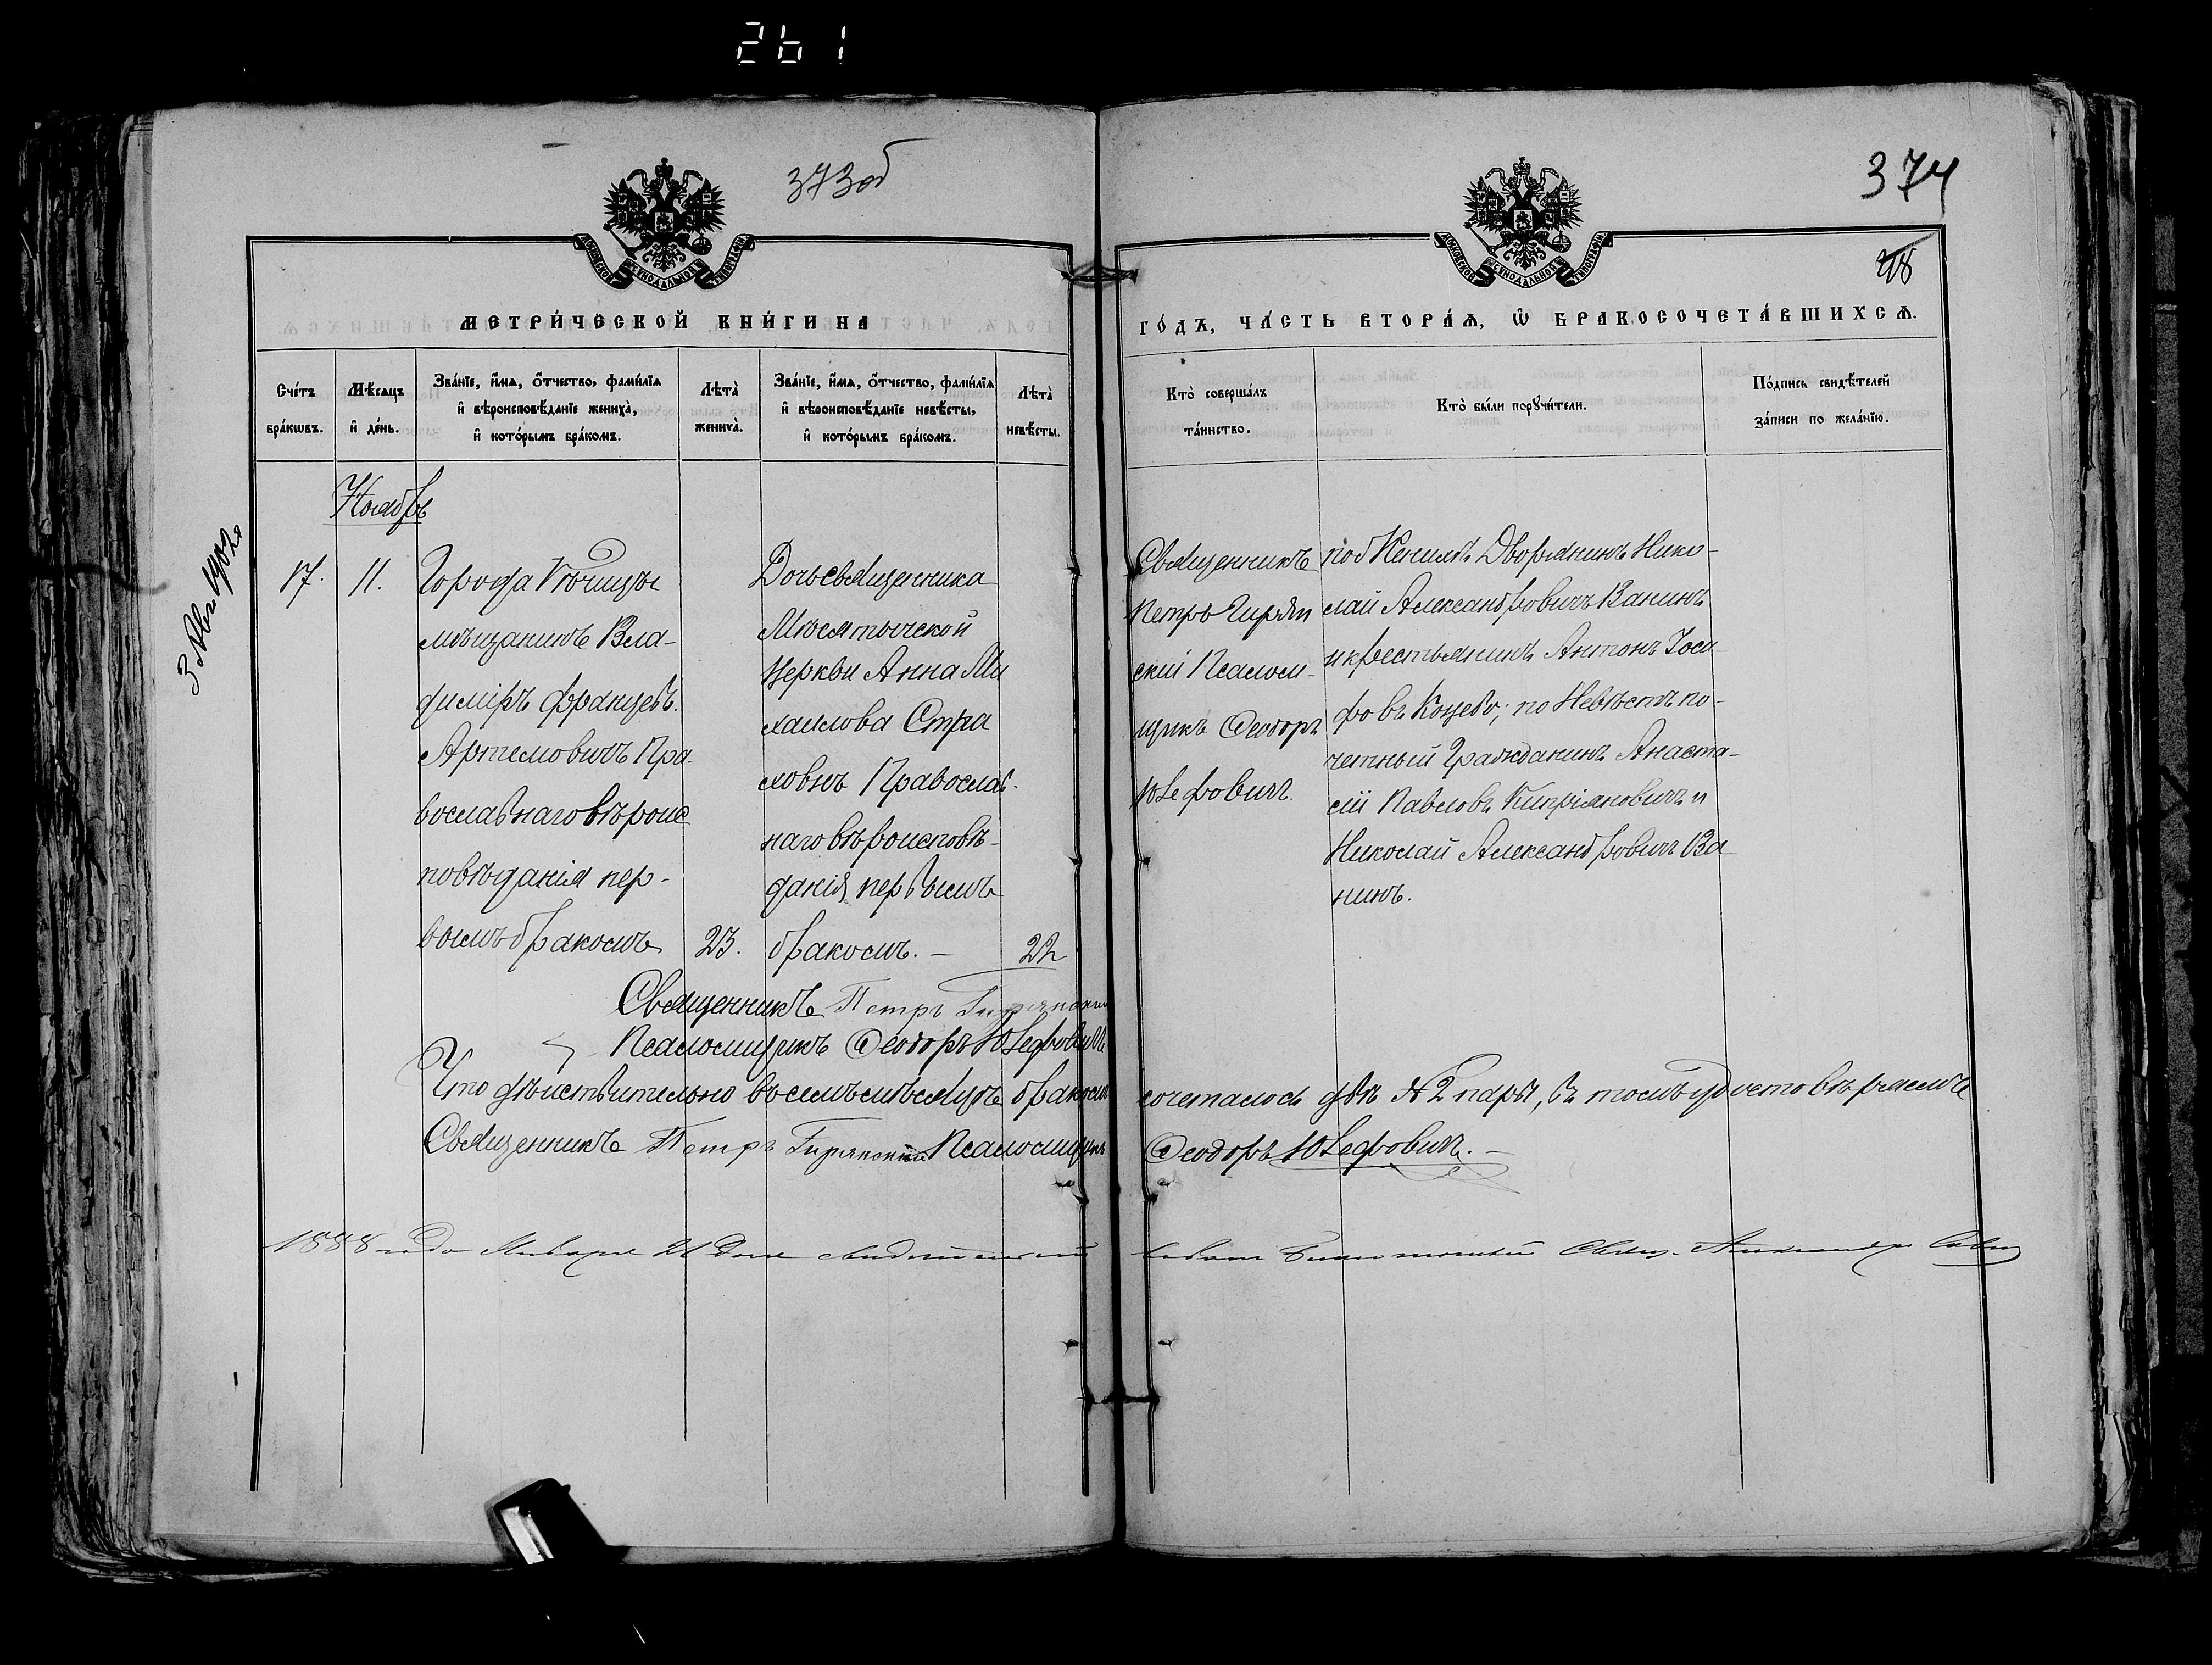 261
373об
374
48
МОСКОВСКОЙ СУНОДАЛЬНОЙ ТИПОГРАФІИ
МОСКОВСКОЙ СУНОДАЛЬНОЙ ТИПОГРАФІИ
МЕТРИ́ЧЕСКОЙ КНИ́ГИ НА
ГО́ДЪ, ЧА́СТЬ ВТОРА́Ѧ, Ѿ БРАКОСОЧЕТА́ВШИХСѦ.
Сче́тъ
бра́кѡвъ.
Мѣ́сѧцъ
и҆ де́нь.
Зва́нїе, и҆́мѧ, ѻ҆́тчество, фами́лїѧ
и҆ вѣроисповѣ́данїе жениха̀,
и҆ кото́рымъ бра́комъ.
Лѣта̀
жениха̀.
Зва́нїе, и҆́мѧ, ѻ҆́тчество, фами́лїѧ
и҆ вѣроисповѣ́данїе невѣ́сты,
и҆ кото́рымъ бра́комъ.
Лѣта̀
невѣ́сты.
Кто̀ соверша́лъ
та́инство.
Кто̀ бы́ли порꙋчи́тели.
По́дпись свидѣ́телей
за́писи по жела́нїю.
Ноябрь
17.
11.
Города
мѣщанинъ Вла-
диміръ Францевъ
Артемовичъ Пра-
вославнаго вѣроис
повѣданія пер-
вымъ бракомъ
23.
Дочь священника
Церкви Анна Ми
хаилова Стра
ховичъ Православ-
наго вѣроисповѣ-
данія первымъ
бракомъ. –
22
Священникъ
Петръ Гирян
скій Псаломщикъ Ѳеодоръ
Юзефовичъ.
по Женихѣ Дворянинъ Нико-
лай Александровичъ Ванинъ
и крестьянинъ Антонъ Іоса-
фовъ Коцебо; по Невѣстѣ по-
четный Гражданинъ Анаста-
сій Павловъ Кипріановичъ и
Николай Александровичъ Ва
нинъ.
Священникъ Петръ Гирянскій
Псаломщикъ Ѳеодоръ Юзефовичъ
Что дѣйствительно въ семъ мѣсяцѣ бракомъ сочеталось двѣ № 2 пары, въ томъ удостовѣряемъ
Священникъ Петръ Гирянскій Псаломщикъ Ѳеодоръ Юзефовичъ. –
1888 года Января 21 дня Свящ. Александръ